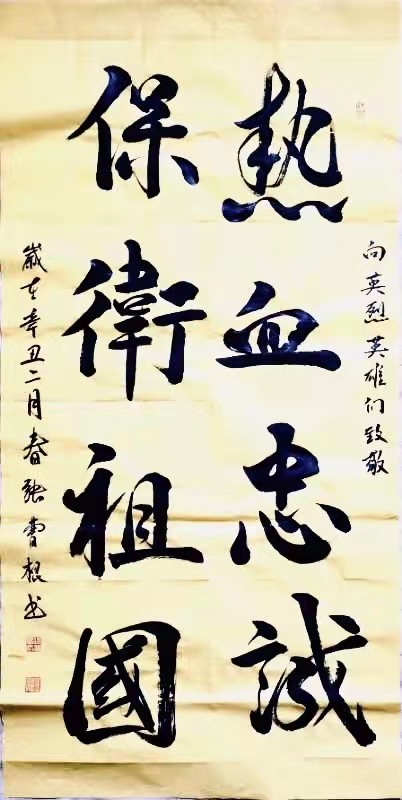 向英烈英雄们致敬
熱血忠誠
保衛祖國
歲在辛丑二月春張曹根书